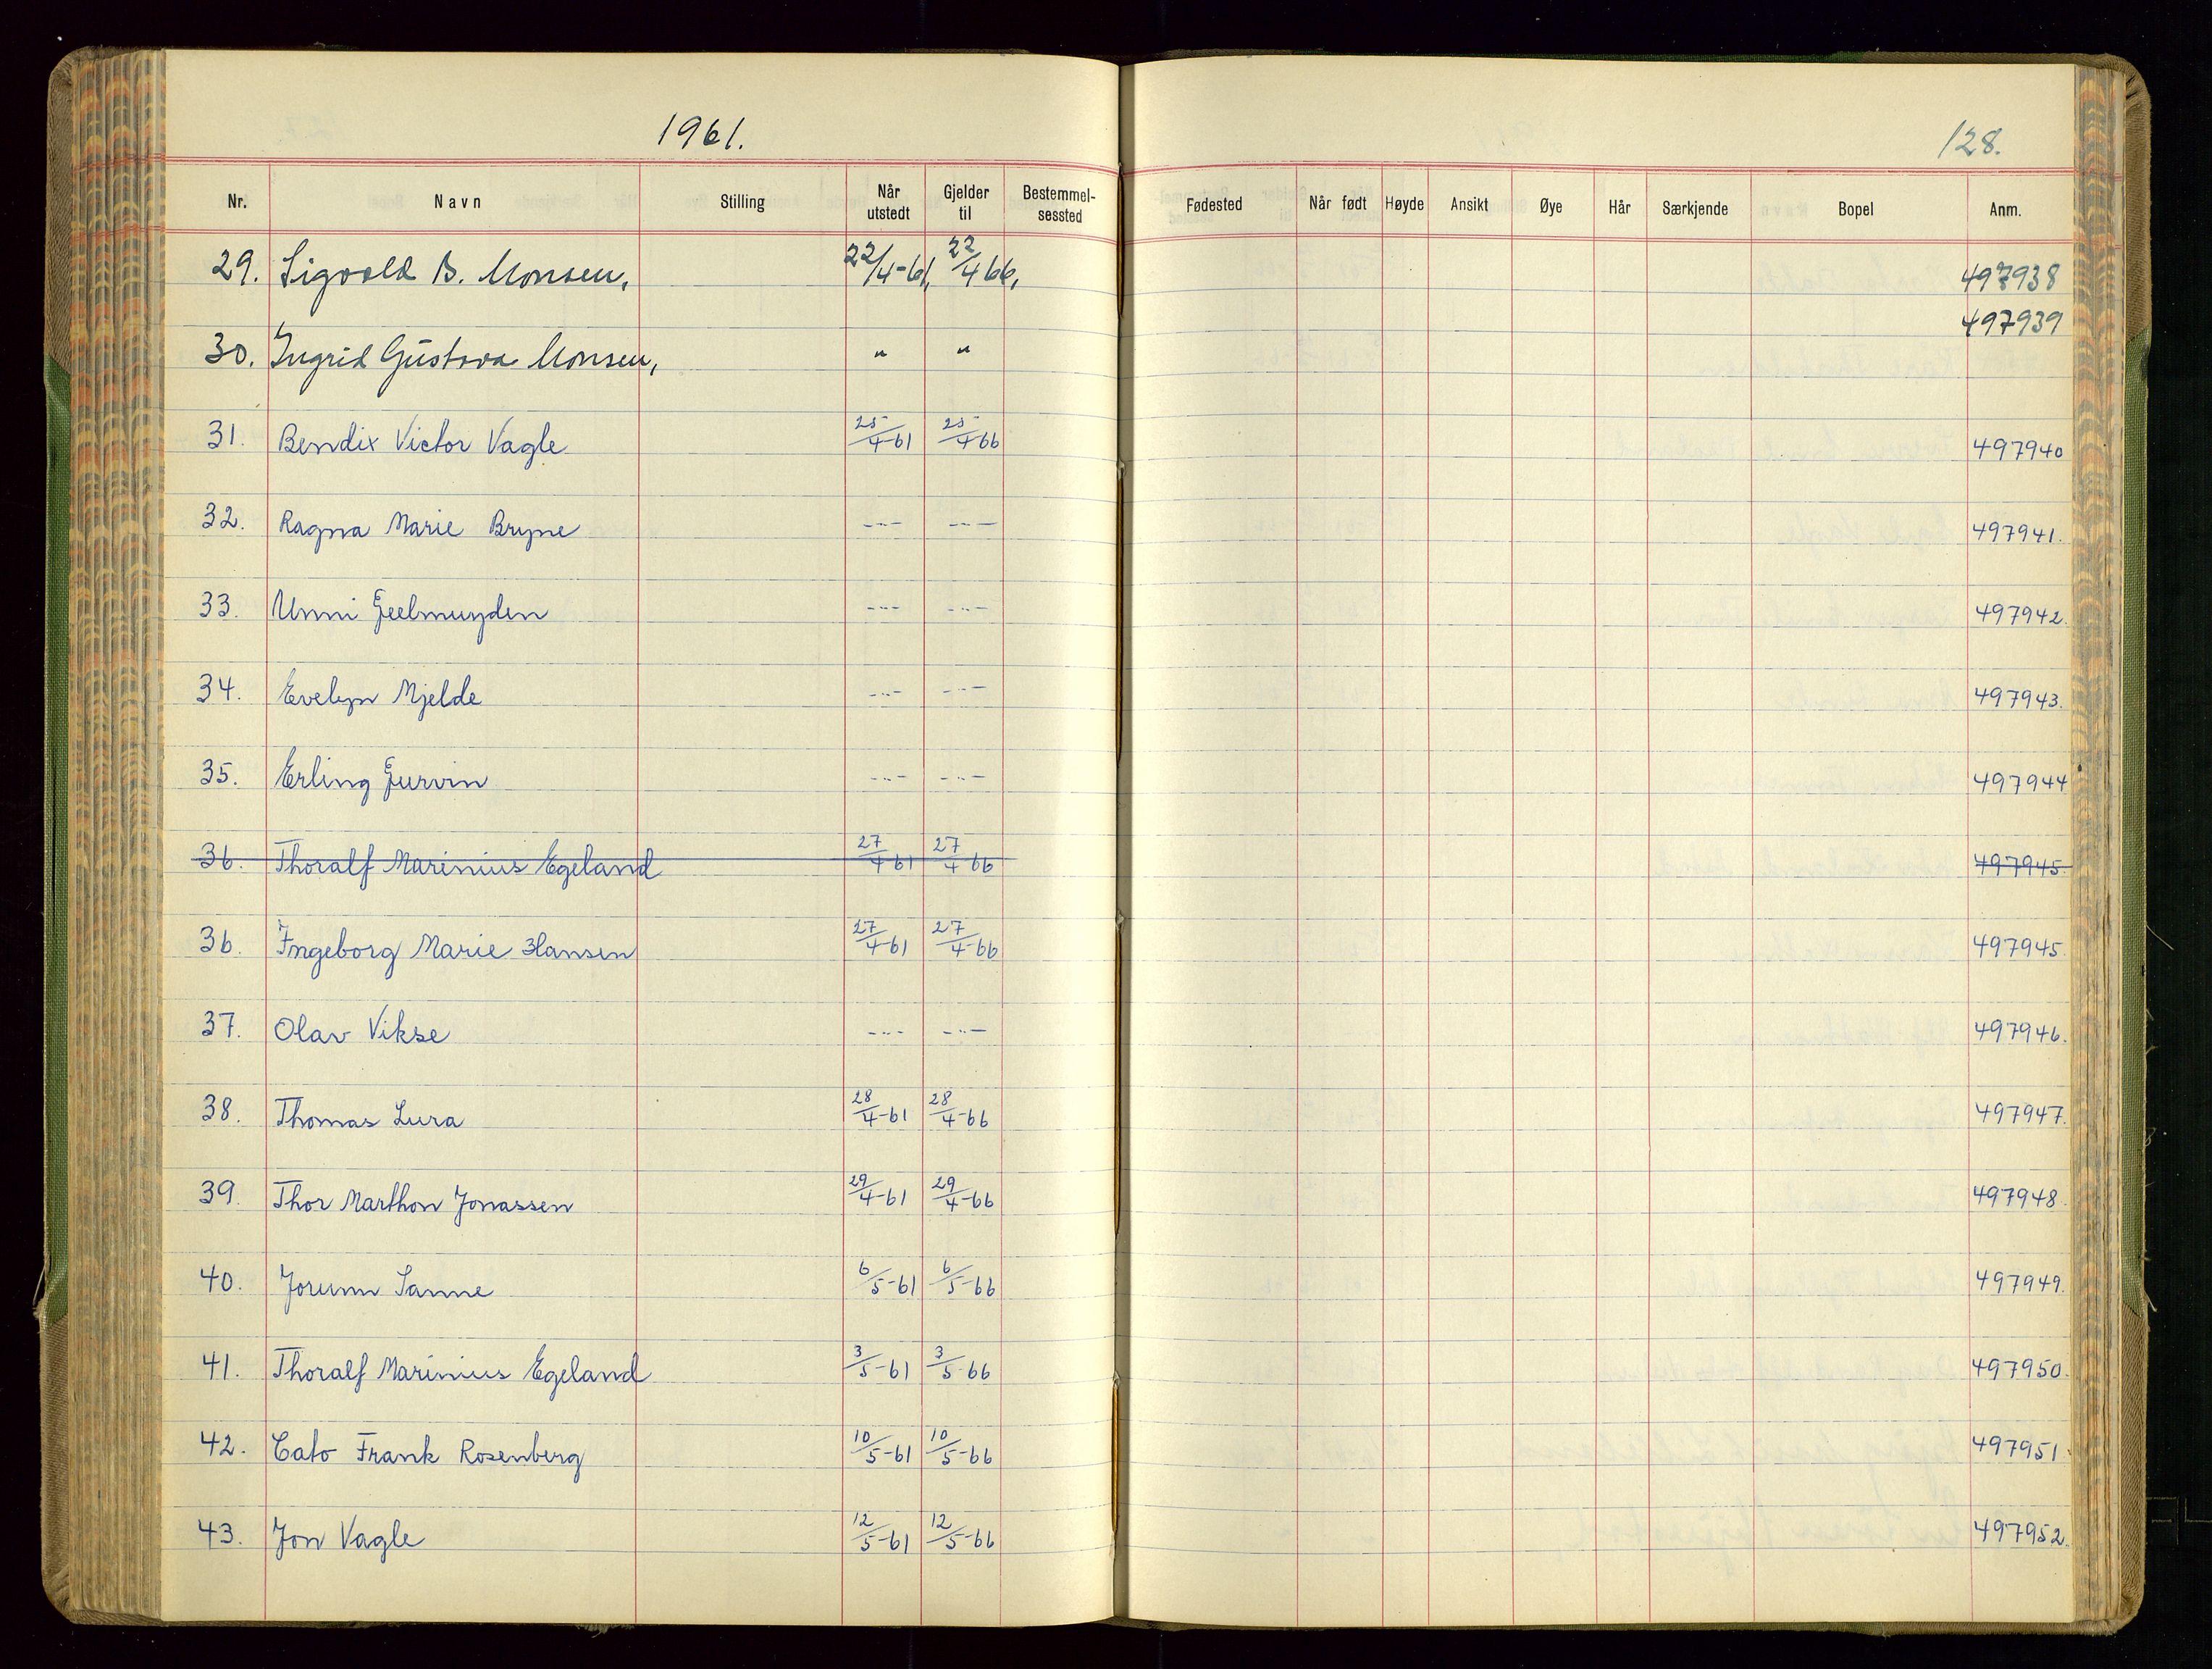 1961.
128.
Nr. Navn Stilling Når utstedt Gjelder til Bestemmelsessted Fødested Når født Høyde Ansikt Øye Hår Særkjende Bopel Anm.
29. Sigvald B. Monsen, 22/4-61, 22/4 66, 497938
30. Ingrid Gustava Monsen, " " 497939
31. Bendix Victor Vagle 25/4-61 25/4-66 497940
32. Ragna Marie Bryne -"- -"- 497941.
33. Unni Geelmuyden -"- -"- 497942.
34. Evelyn Mjelde -"- -"- 497943.
35. Erling Gurvin -"- -"- 497944
36. Thoralf Marinius Egeland 27/4-61 27/4-66 497945.
36. Ingeborg Marie Hansen 27/4-61 27/4-66 497945.
37. Olav Vikse -"- -"- 497946.
38. Thomas Lura 28/4-61 28/4-66 497947.
39. Thor Marthon Jonassen 29/4-61 29/4-66 497948.
40. Jorunn Sanne 6/5-61 6/5-66 497949.
41. Thoralf Marinius Egeland 3/5-61 3/5-66 497950.
42. Cato Frank Rosenberg 10/5-61 10/5-66 497951.
43. Jon Vagle 12/5-61 12/5-66 497952.